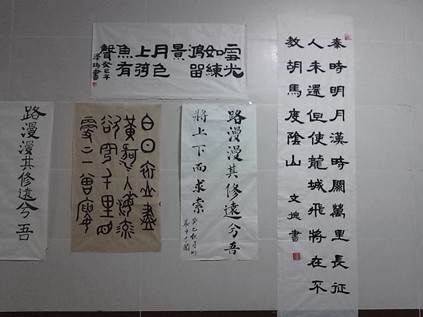 雪光
如練
鴻留
景
月色
上
魚有
聲 癸巳年
書
秦時明月漢時關萬里長征
人未還但使龍城飛將在不
教胡馬度陰山 文 書
路漫漫其修遠兮吾
將上下而求索
白日依山盡
黃河入海流
欲窮千里目
更上一層樓
路漫漫其修遠兮吾